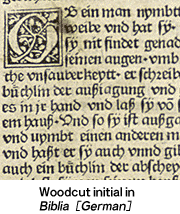 B ein man nymbtt
weibe vnd hat sy-
sy nit findet genad
seinen augen-vmb
the vnsauberkeytt· er schreib
büchlin der außigung· vnd
es in ir hand vnd laß sy võ s
em hauß·Vnd so sy ist außga
vnd nymbt einen anderen m
vnd haßt er sy auch vnnd gib
auch ein büchlin der abschey
Woodcut initial in
Biblia [German]